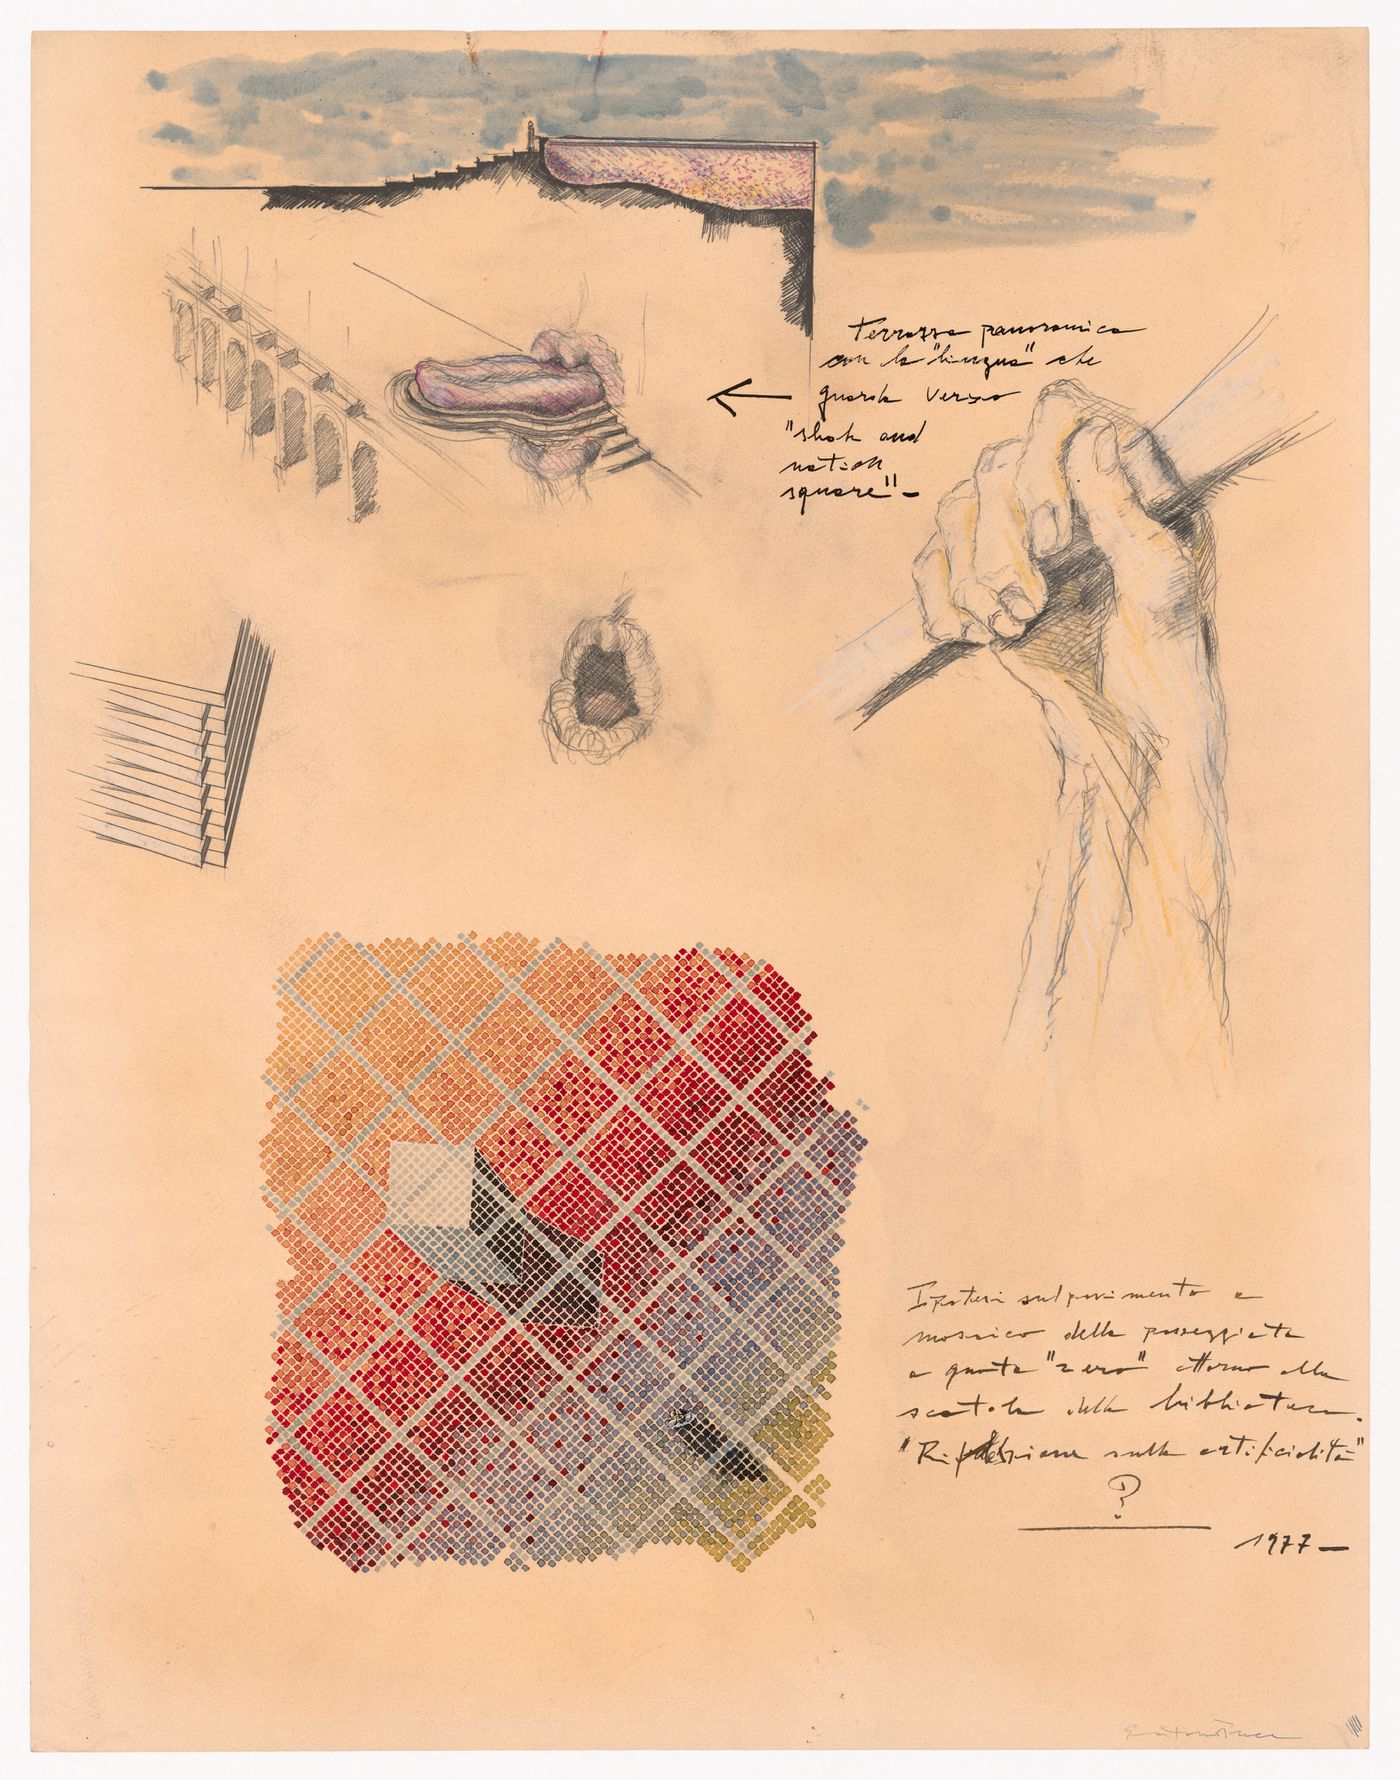 Terrazza panoramica
con la "lingua" che
guarda verso
"shok and
square"-
Ipotesi sul pavimento a
mosaico della passeggiata
a quota "zero" attorno alla
scatola della biblioteca.
"Riflessione sulla artificialità"
?
1977-